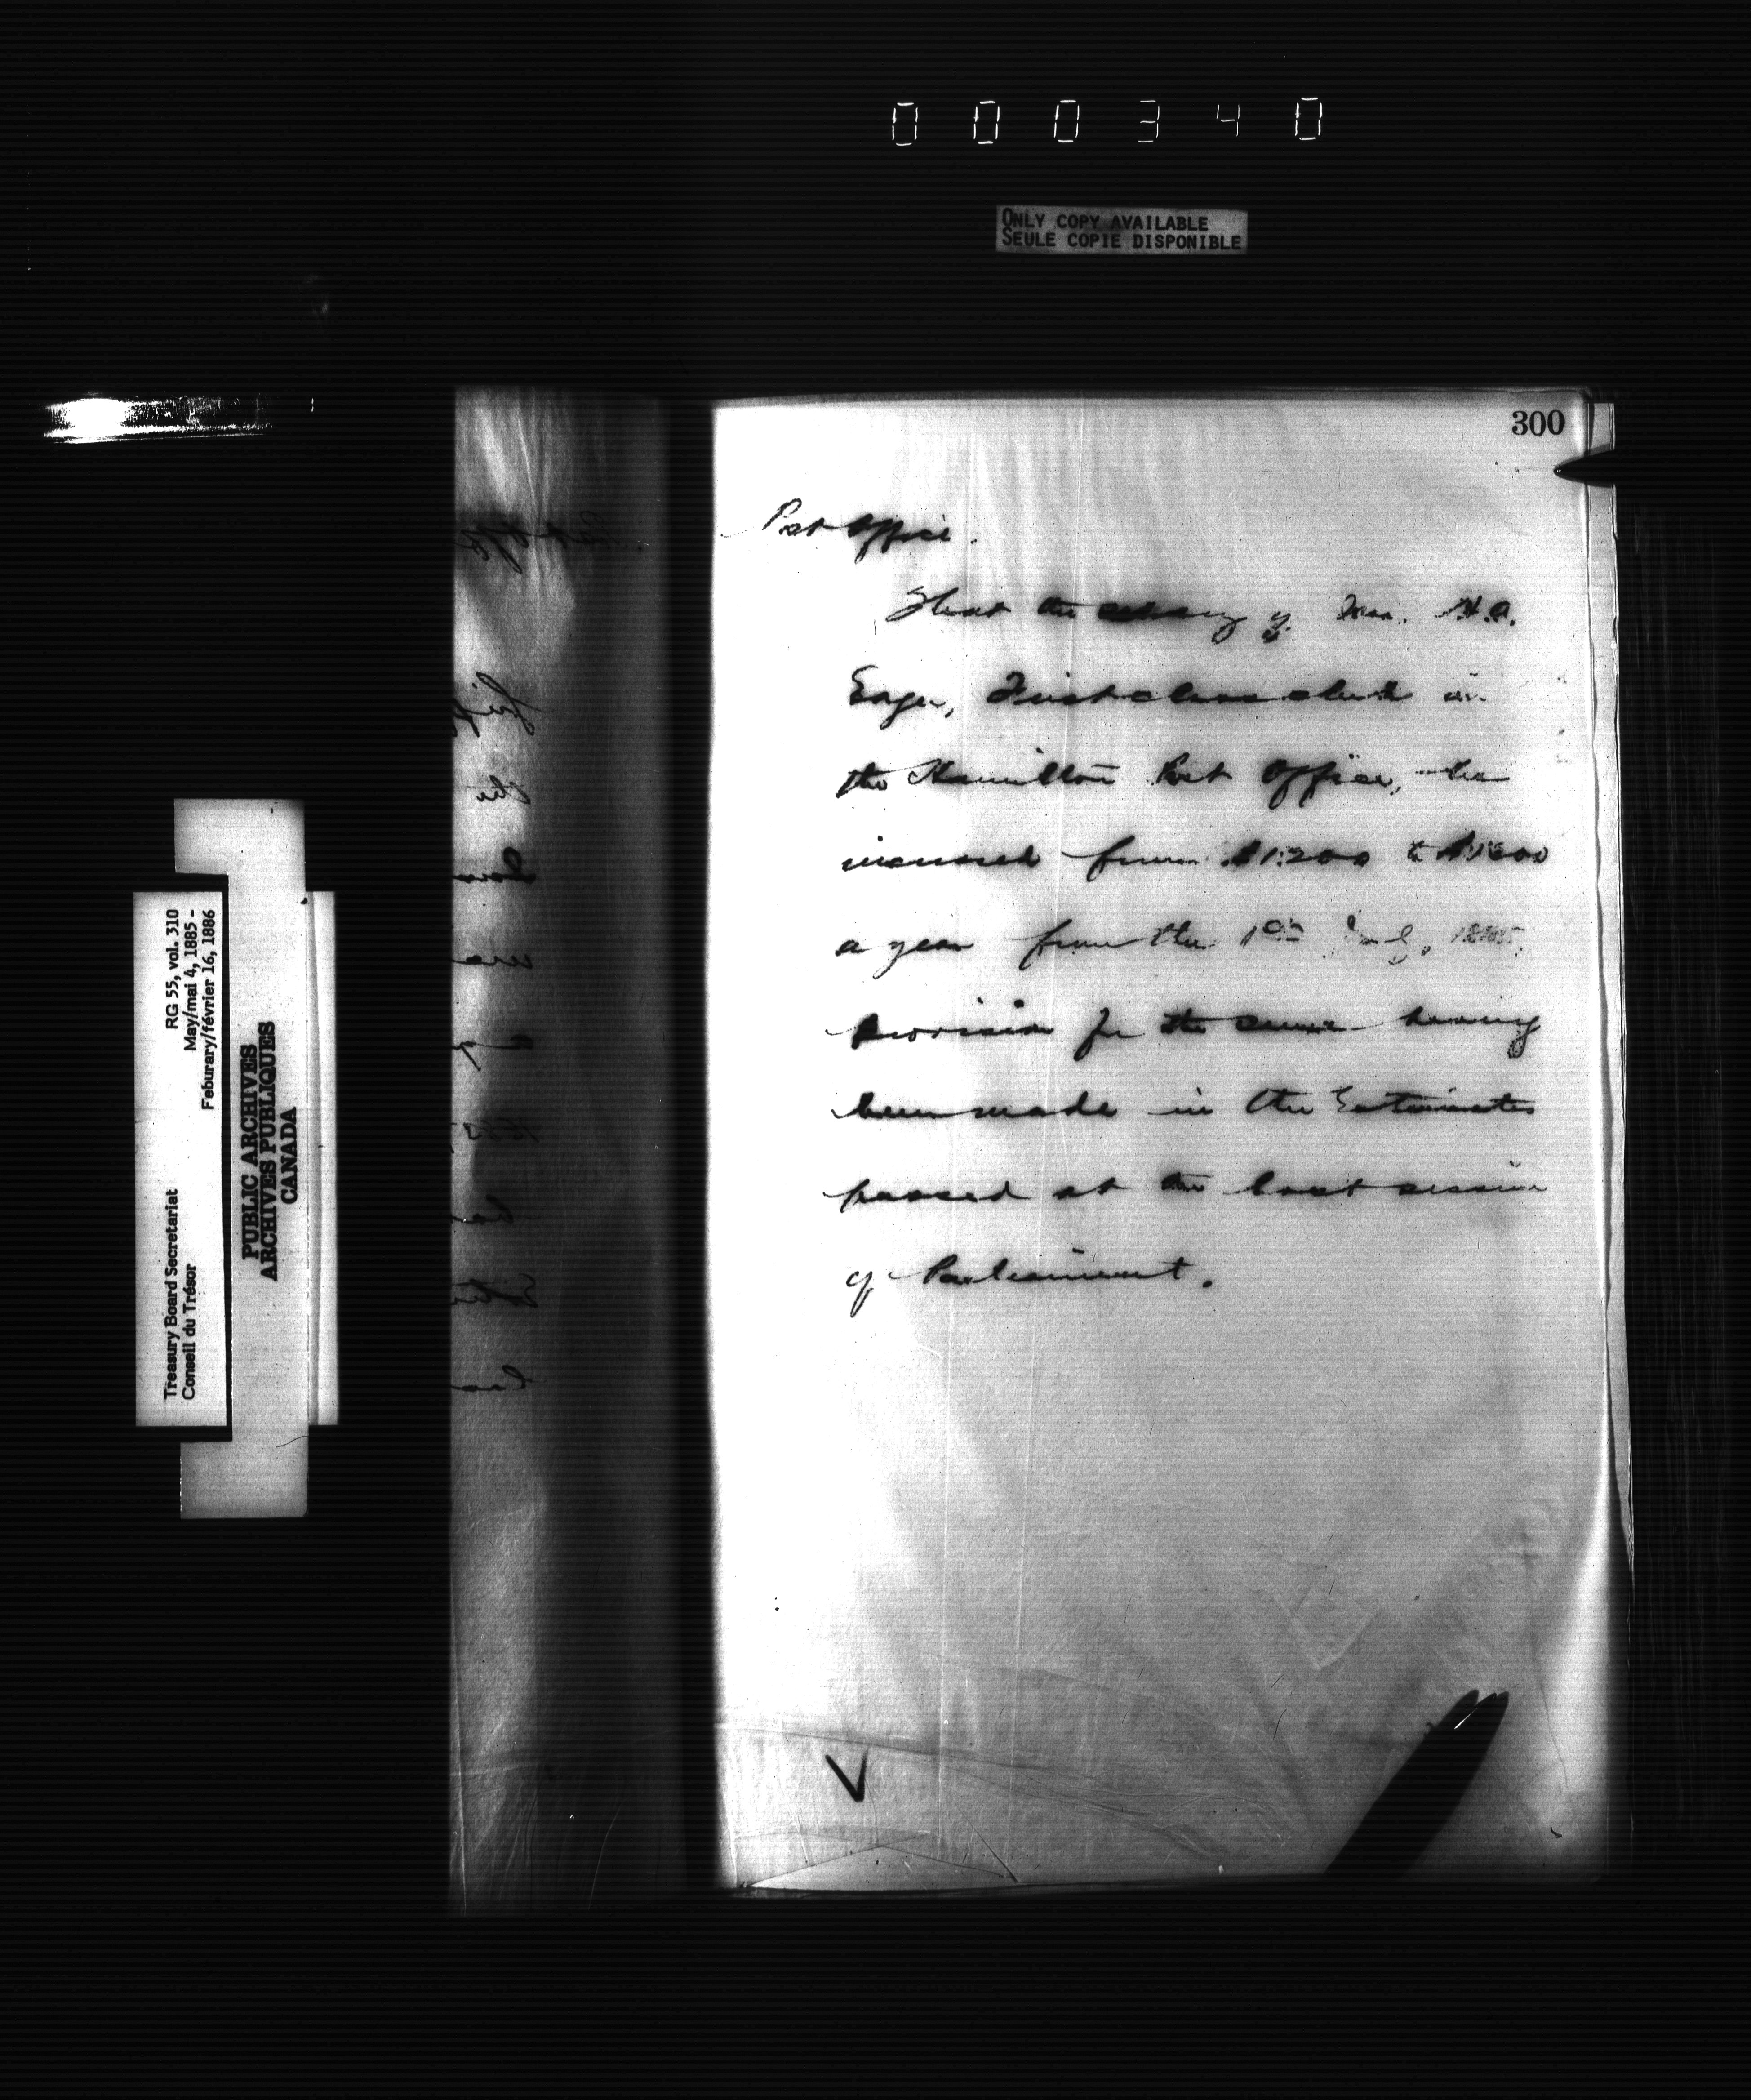 000340
ONLY COPY AVAILABLE
SEULE COPIE DISPONIBLE
300
Post Office.
That the salary of Mr. H.A.
Eager, First class clerk in
the Hamilton Post Office, be
increased from $1.200 to
a year from the 1st July, 1885,
provision for the same having
been made in the Estimates
passed at the last session
of Parliament.
V
Treasury Board Secretariat RG 55, vol. 310
Conseil du Trésor May/mai 4, 1885 -
Feburary/février 16, 1886
PUBLIC ARCHIVES
ARCHIVES PUBLIQUES
CANADA